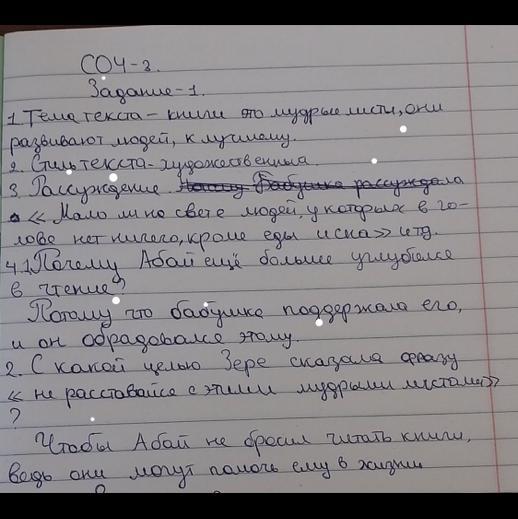 СОЧ-3.
Задание-1.
1 Тема текста - книги это мудрые листы, они
развивают людей, к лучшему.
2. Стиль текста - художественный.
3. Рассуждение. Бабушка рассуждала
« Мало ли на свете людей, у которых в го-
лове нет ничего, кроме еды и сна» итд.
4.1. Почему Абай ещё больше углубелся
в чтение?
Потому что бабушка поддержала его,
и он обрадовался этому.
2. С какой целью Зере сказала фразу
« не расставайся с этими мудрыми листами»
?
Чтобы Абай не бросил читать книги,
ведь они могут помочь ему в жизни